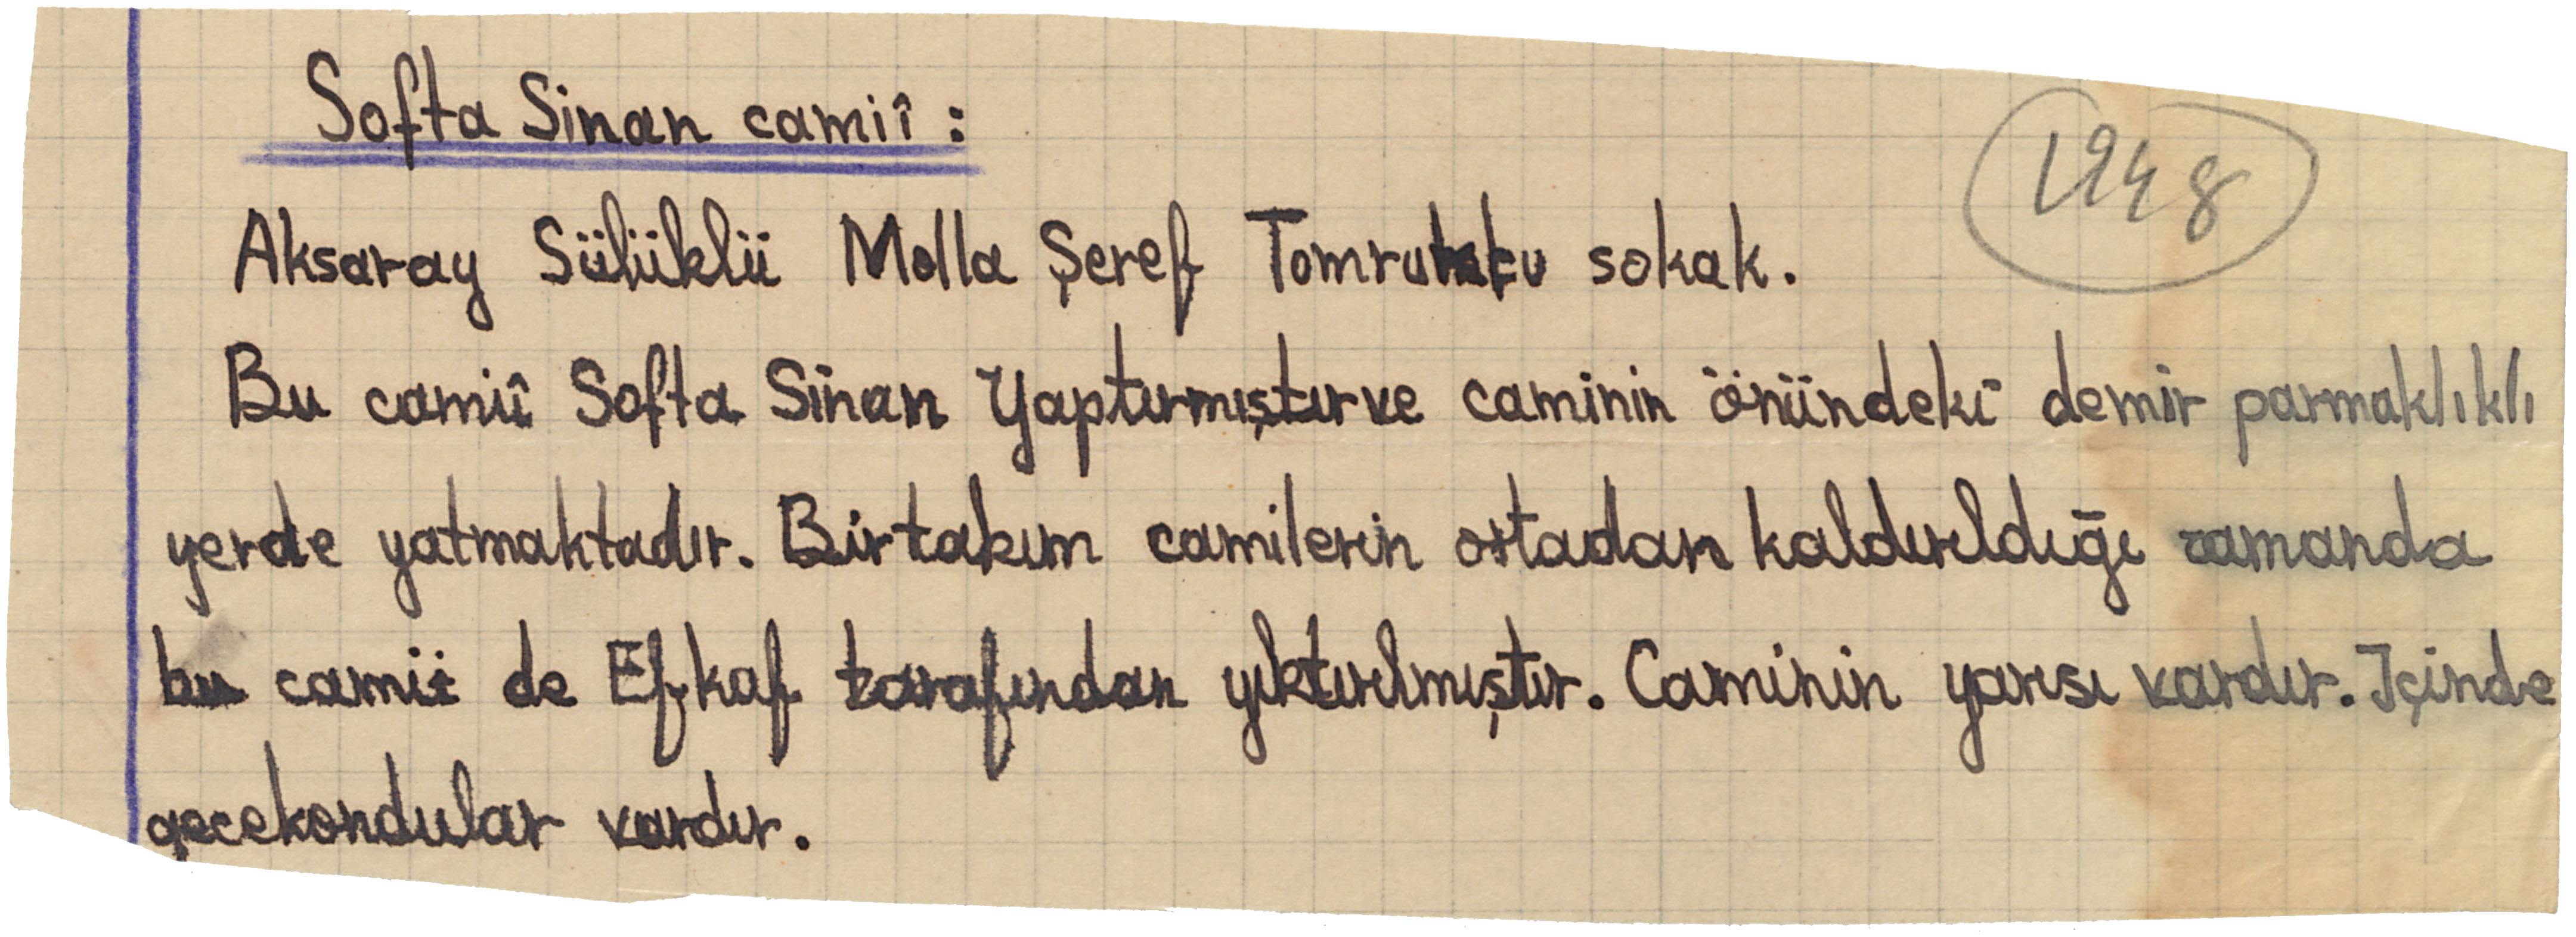 Softa Sinan camiî :
1948
Aksaray Sülüklü Molla Şeref Tomrukcu sokak.
Bu camiî Softa Sinan Yaptırmıştır ve caminin önündeki demir parmaklıklı
yerde yatmaktadır. Birtakım camilerin ortadan kaldırıldığı zamanda
bu camii de Efkaf tarafından yıktırılmıştır. Caminin yarısı vardır. Içinde
gecekondular vardır.